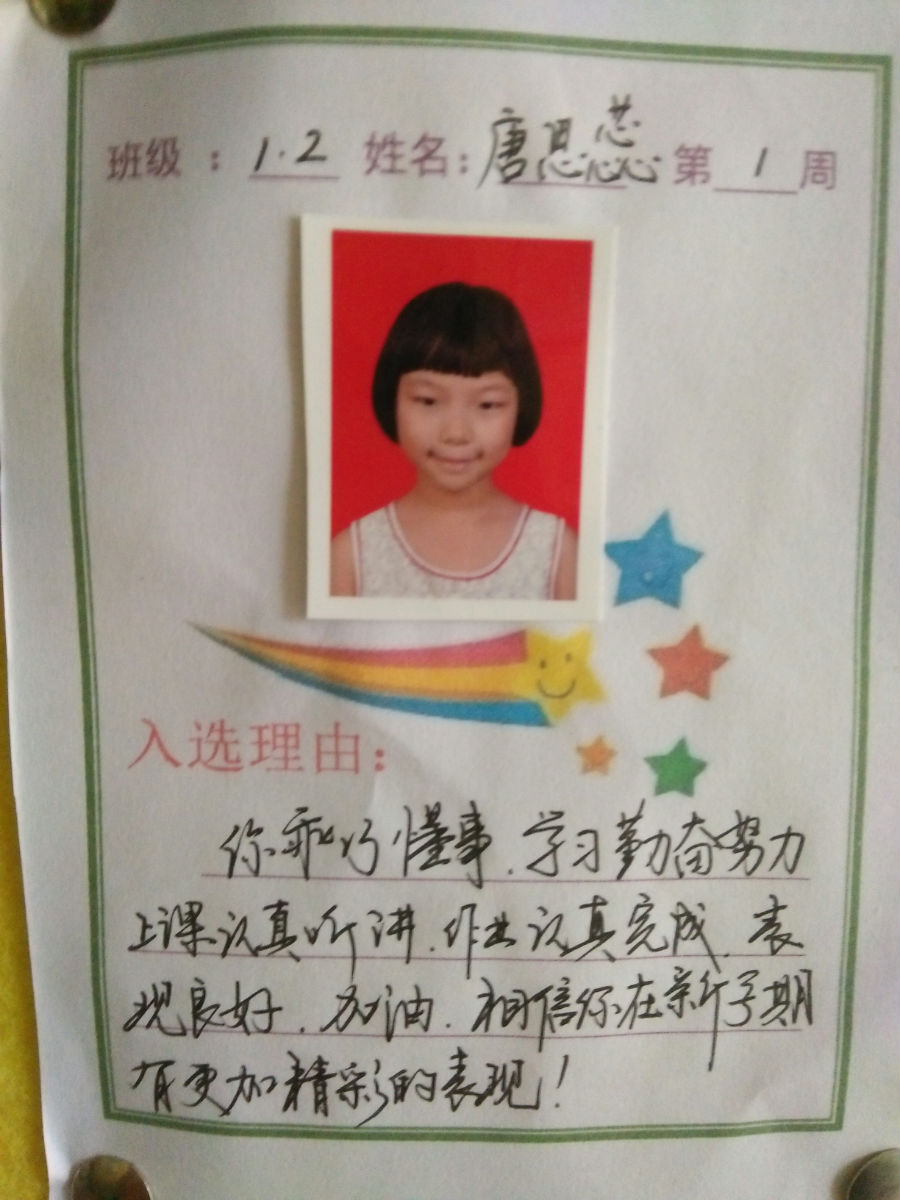 班级：1.2 姓名：唐思蕊 第1周
入选理由：
你乖巧懂事，学习勤奋努力
上课认真听讲，作业认真完成，表
现良好，加油，相信你在新学期
有更加精彩的表现！